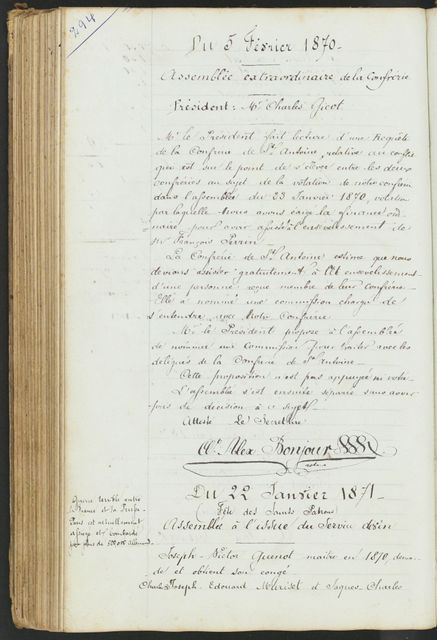 294
Du 5 Février 1870.
Assemblée extraordinaire de la Confrérie
Président: Mr Charles Gicot
Mr le Président fait lecture d'une Requête
de la Confrérie de St Antoine, relative au conflit
qui est sur le point de s'élever entre les deux
confréries au sujet de la votation de notre confrérie
dans l'assemblée du 23 Janvier 1870, votation
par laquelle nous avons exigé la finance ordi-
naire pour avoir assisté à l'ensevelissement de
Mr François Perrin.
La Confrérie de St Antoine estime que nous
devions assister gratuitement à l'ensevelissement
d'une personne reçue membre de leur Confrérie.
Elle a nommé une commission chargée de
s'entendre avec notre Confrérie.
Mr le Président propose à l'assemblée
de nommer une Commission pour traiter avec les
délégués de la Confrérie de St Antoine.
Cette proposition n'est pas appuyée ni votée.
L'assemblée s'est ensuite séparée sans avoir
pris de décision à ce sujet.
Atteste Le Secrétaire
Alex Bonjour
notaire
Du 22 Janvier 1871
(Fête des Saints Patrons)
Assemblée à l'issue du Service divin
Guerre terrible entre
la France et la Prusse
Paris est actuellement
assiégé et bombardé
par plus de allemands
Joseph-Victor Quenot maître en 1870, deman-
de et obtient son congé
Charles Joseph-Edouard Muriset et Jaques-Charles